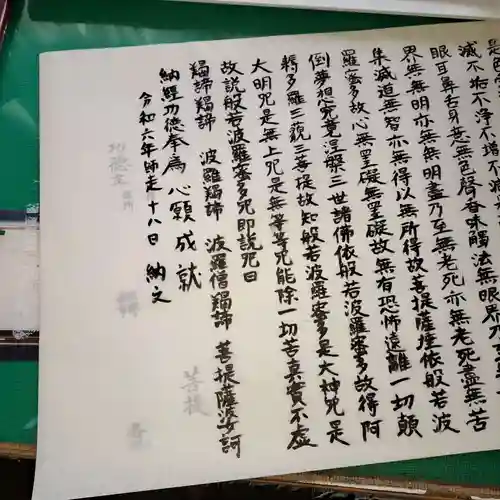 滅不垢不淨不増不減
眼耳鼻舌身意無色聲香味觸法無眼界乃至
界無無明亦無無明盡乃至無老死亦無老死盡無苦
集滅道無智亦無得以無所得故菩提薩埵依般若波
羅蜜多故心無罣礙無罣礙故無有恐怖遠離一切顛
倒夢想究竟涅槃三世諸佛依般若波羅蜜多故得阿
耨多羅三藐三菩提故知般若波羅蜜多是大神咒是
大明咒是無上咒是無等等咒能除一切苦真實不虛
故說般若波羅蜜多咒即說咒曰
羯諦羯諦 波羅羯諦 波羅僧羯諦 菩提薩婆訶
納經功德奉爲 心願成就
令和六年師走十八日 納文
菩提